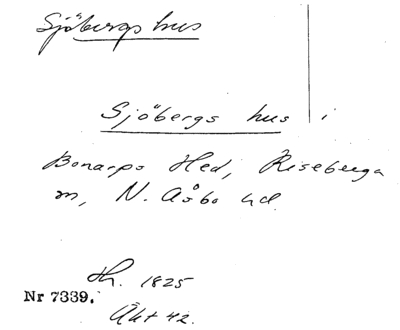 Sjöbergs hus
Sjöbergs hus i
Bonarps Hed, Riseberga
m, N. Åsbo hd.
Th. 1825
Nr 7339.
Akt 42.